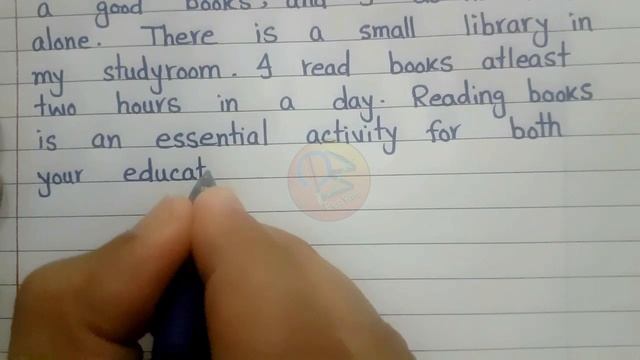 a good books, and
alone. There is a small library in
my studyroom. I read books atleast
two hours in a day. Reading books
is an essential activity for both
your educat